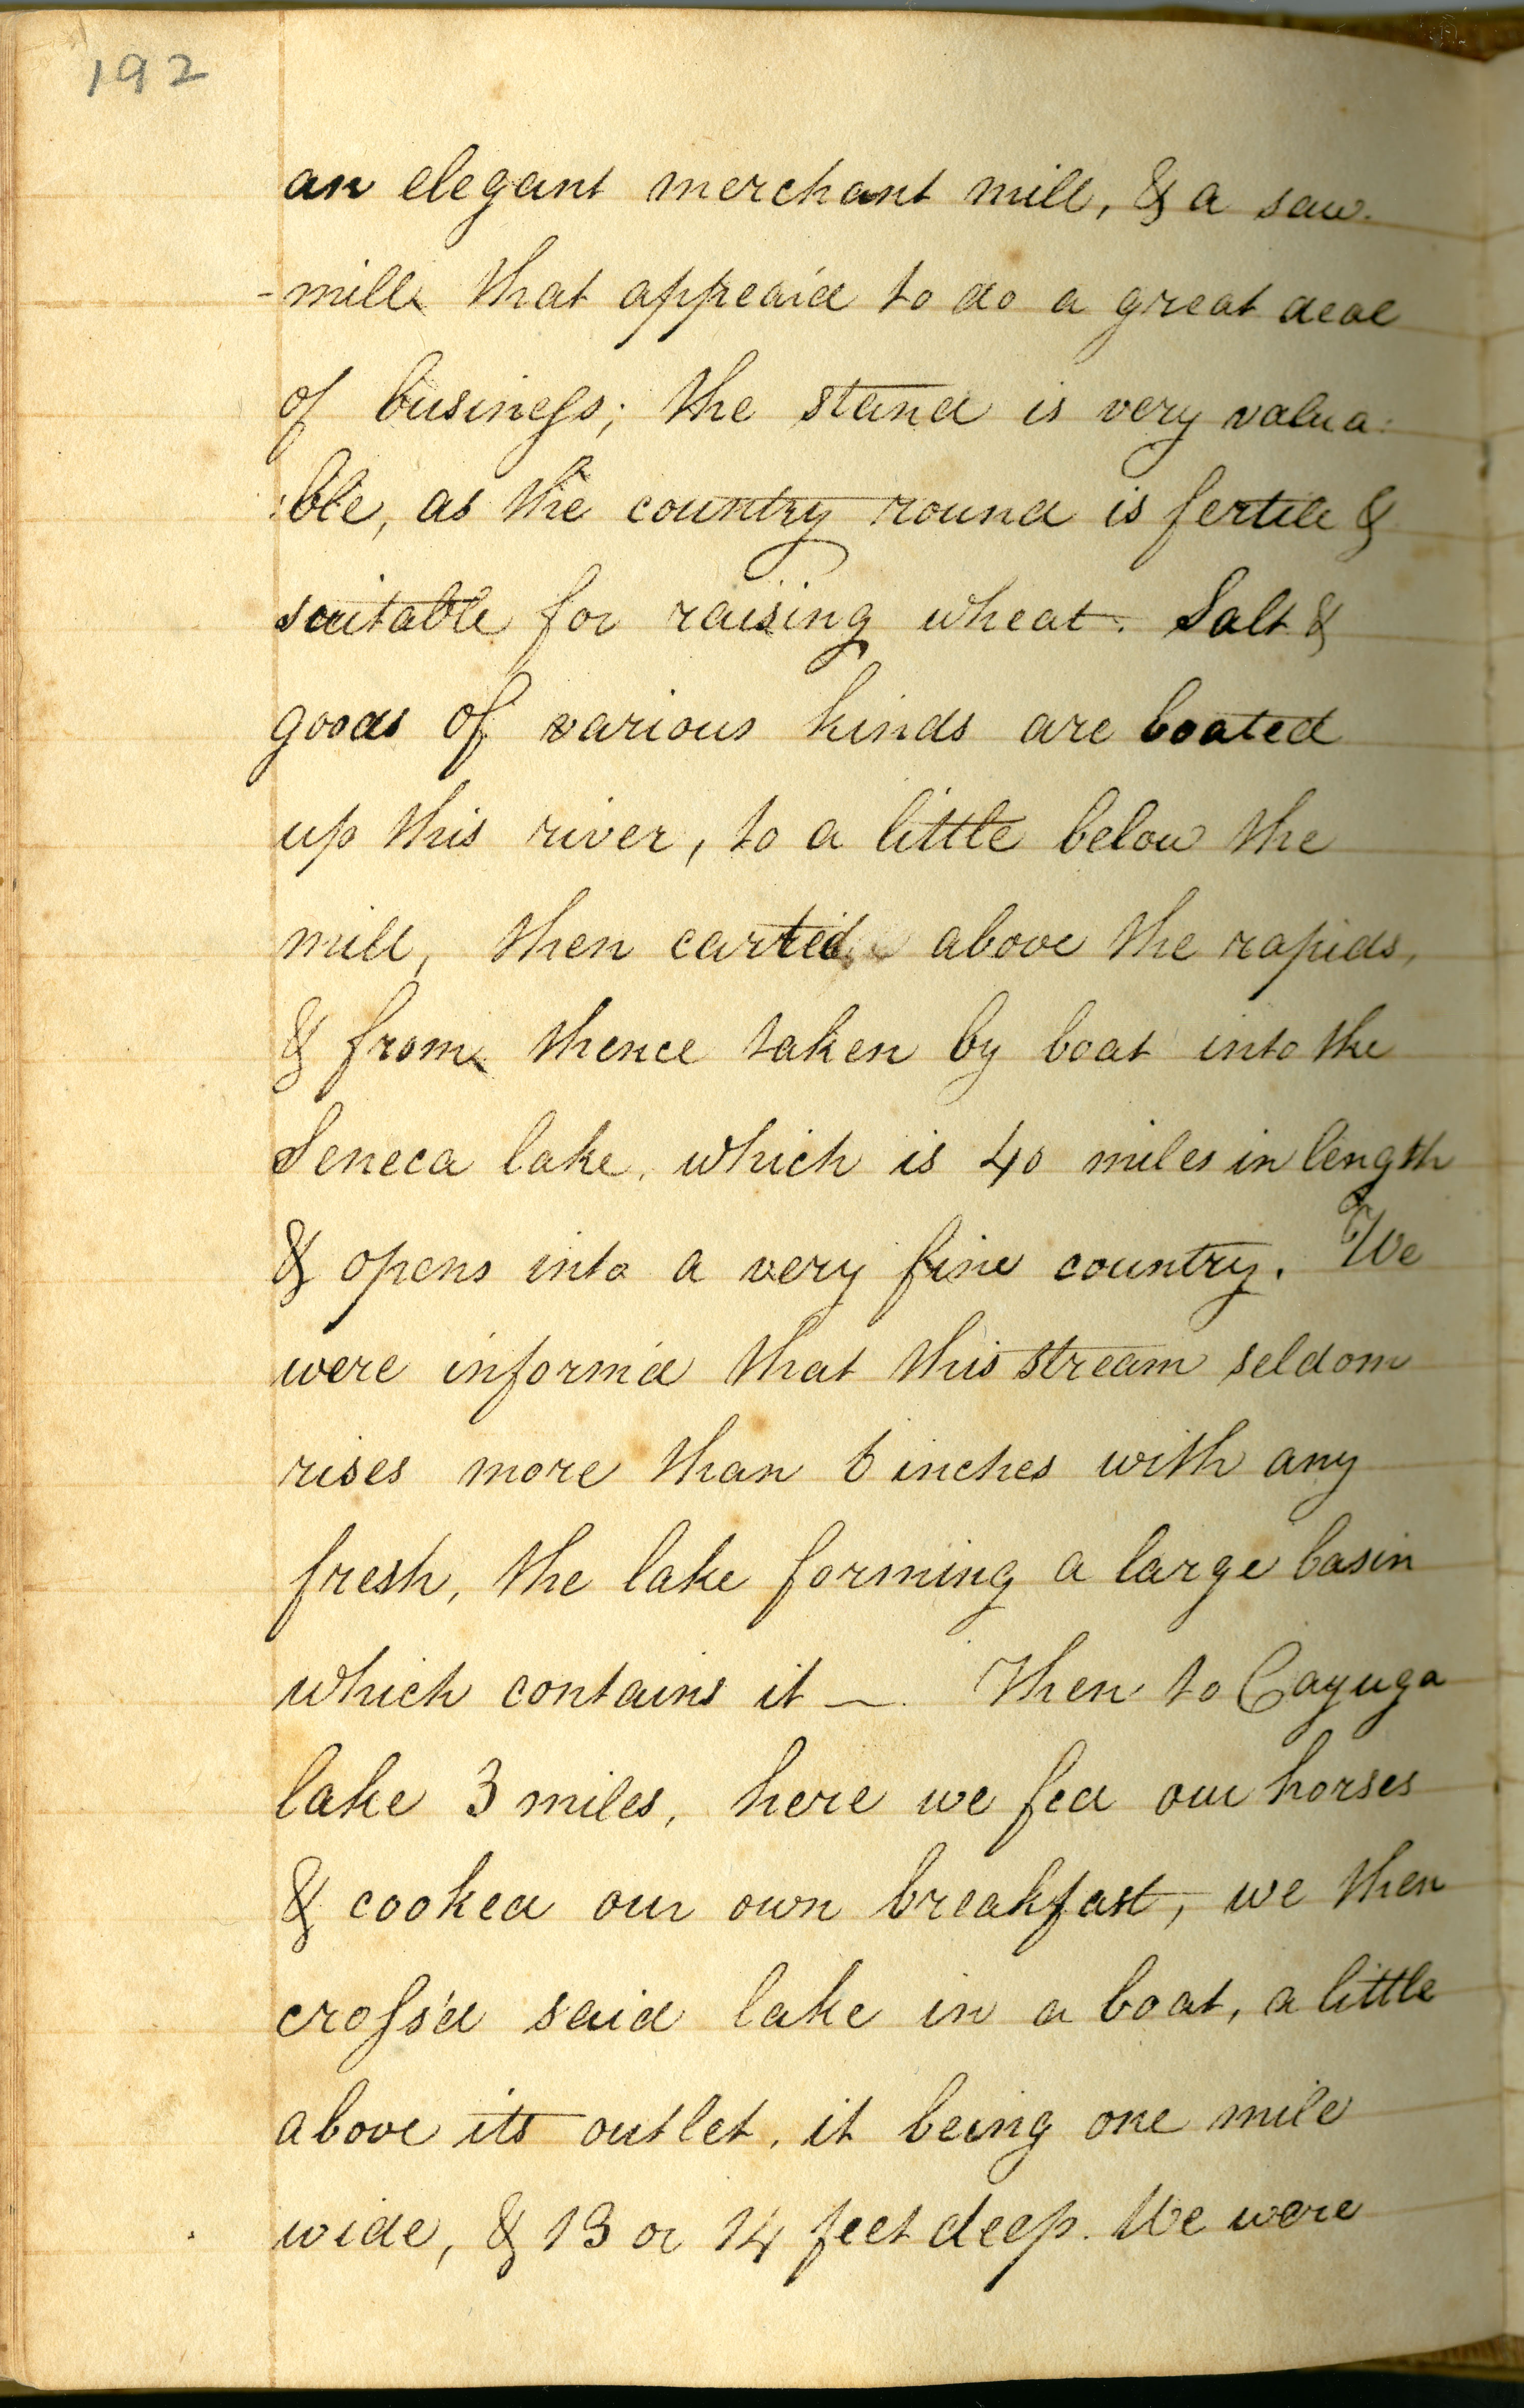 192
an elegant merchant mill, & a saw-
-mill that appear'd to do a great deal
of business; the stand is very valua:
:ble, as the country round is fertile &
suitable for raising wheat. Salt &
goods of various kinds are boated
up this river, to a little below the
mill, then carted above the rapids,
& from thence taken by boat into the
Seneca lake, which is 40 miles in length
& opens into a very fine country. We
were inform'd that this stream seldom
rises more than 6 inches with any
fresh, the lake forming a large basin
which contains it —. Then to Cayuga
lake 3 miles, here we fed our horses
& cooked our own breakfast, we then
cross'd said lake in a boat, a little
above its outlet, it being one mile
wide, & 13 or 14 feet deep. We were